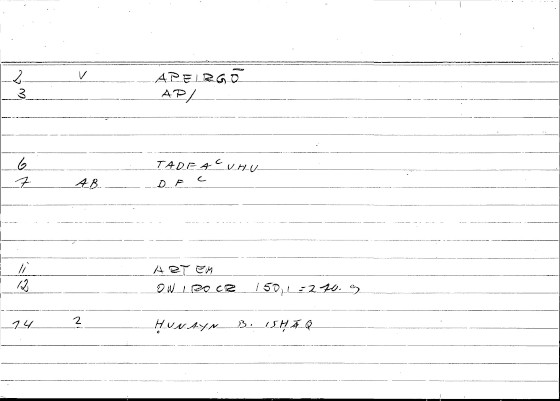 2 V APEIRGŌ
3 AP/
6 TADFAᶜUHU
7 AB DFᶜ
11 ARTEM
12 ONIROCR 150,1 = 240.9
14 2 ḤUNAYN B. ISḤĀQ